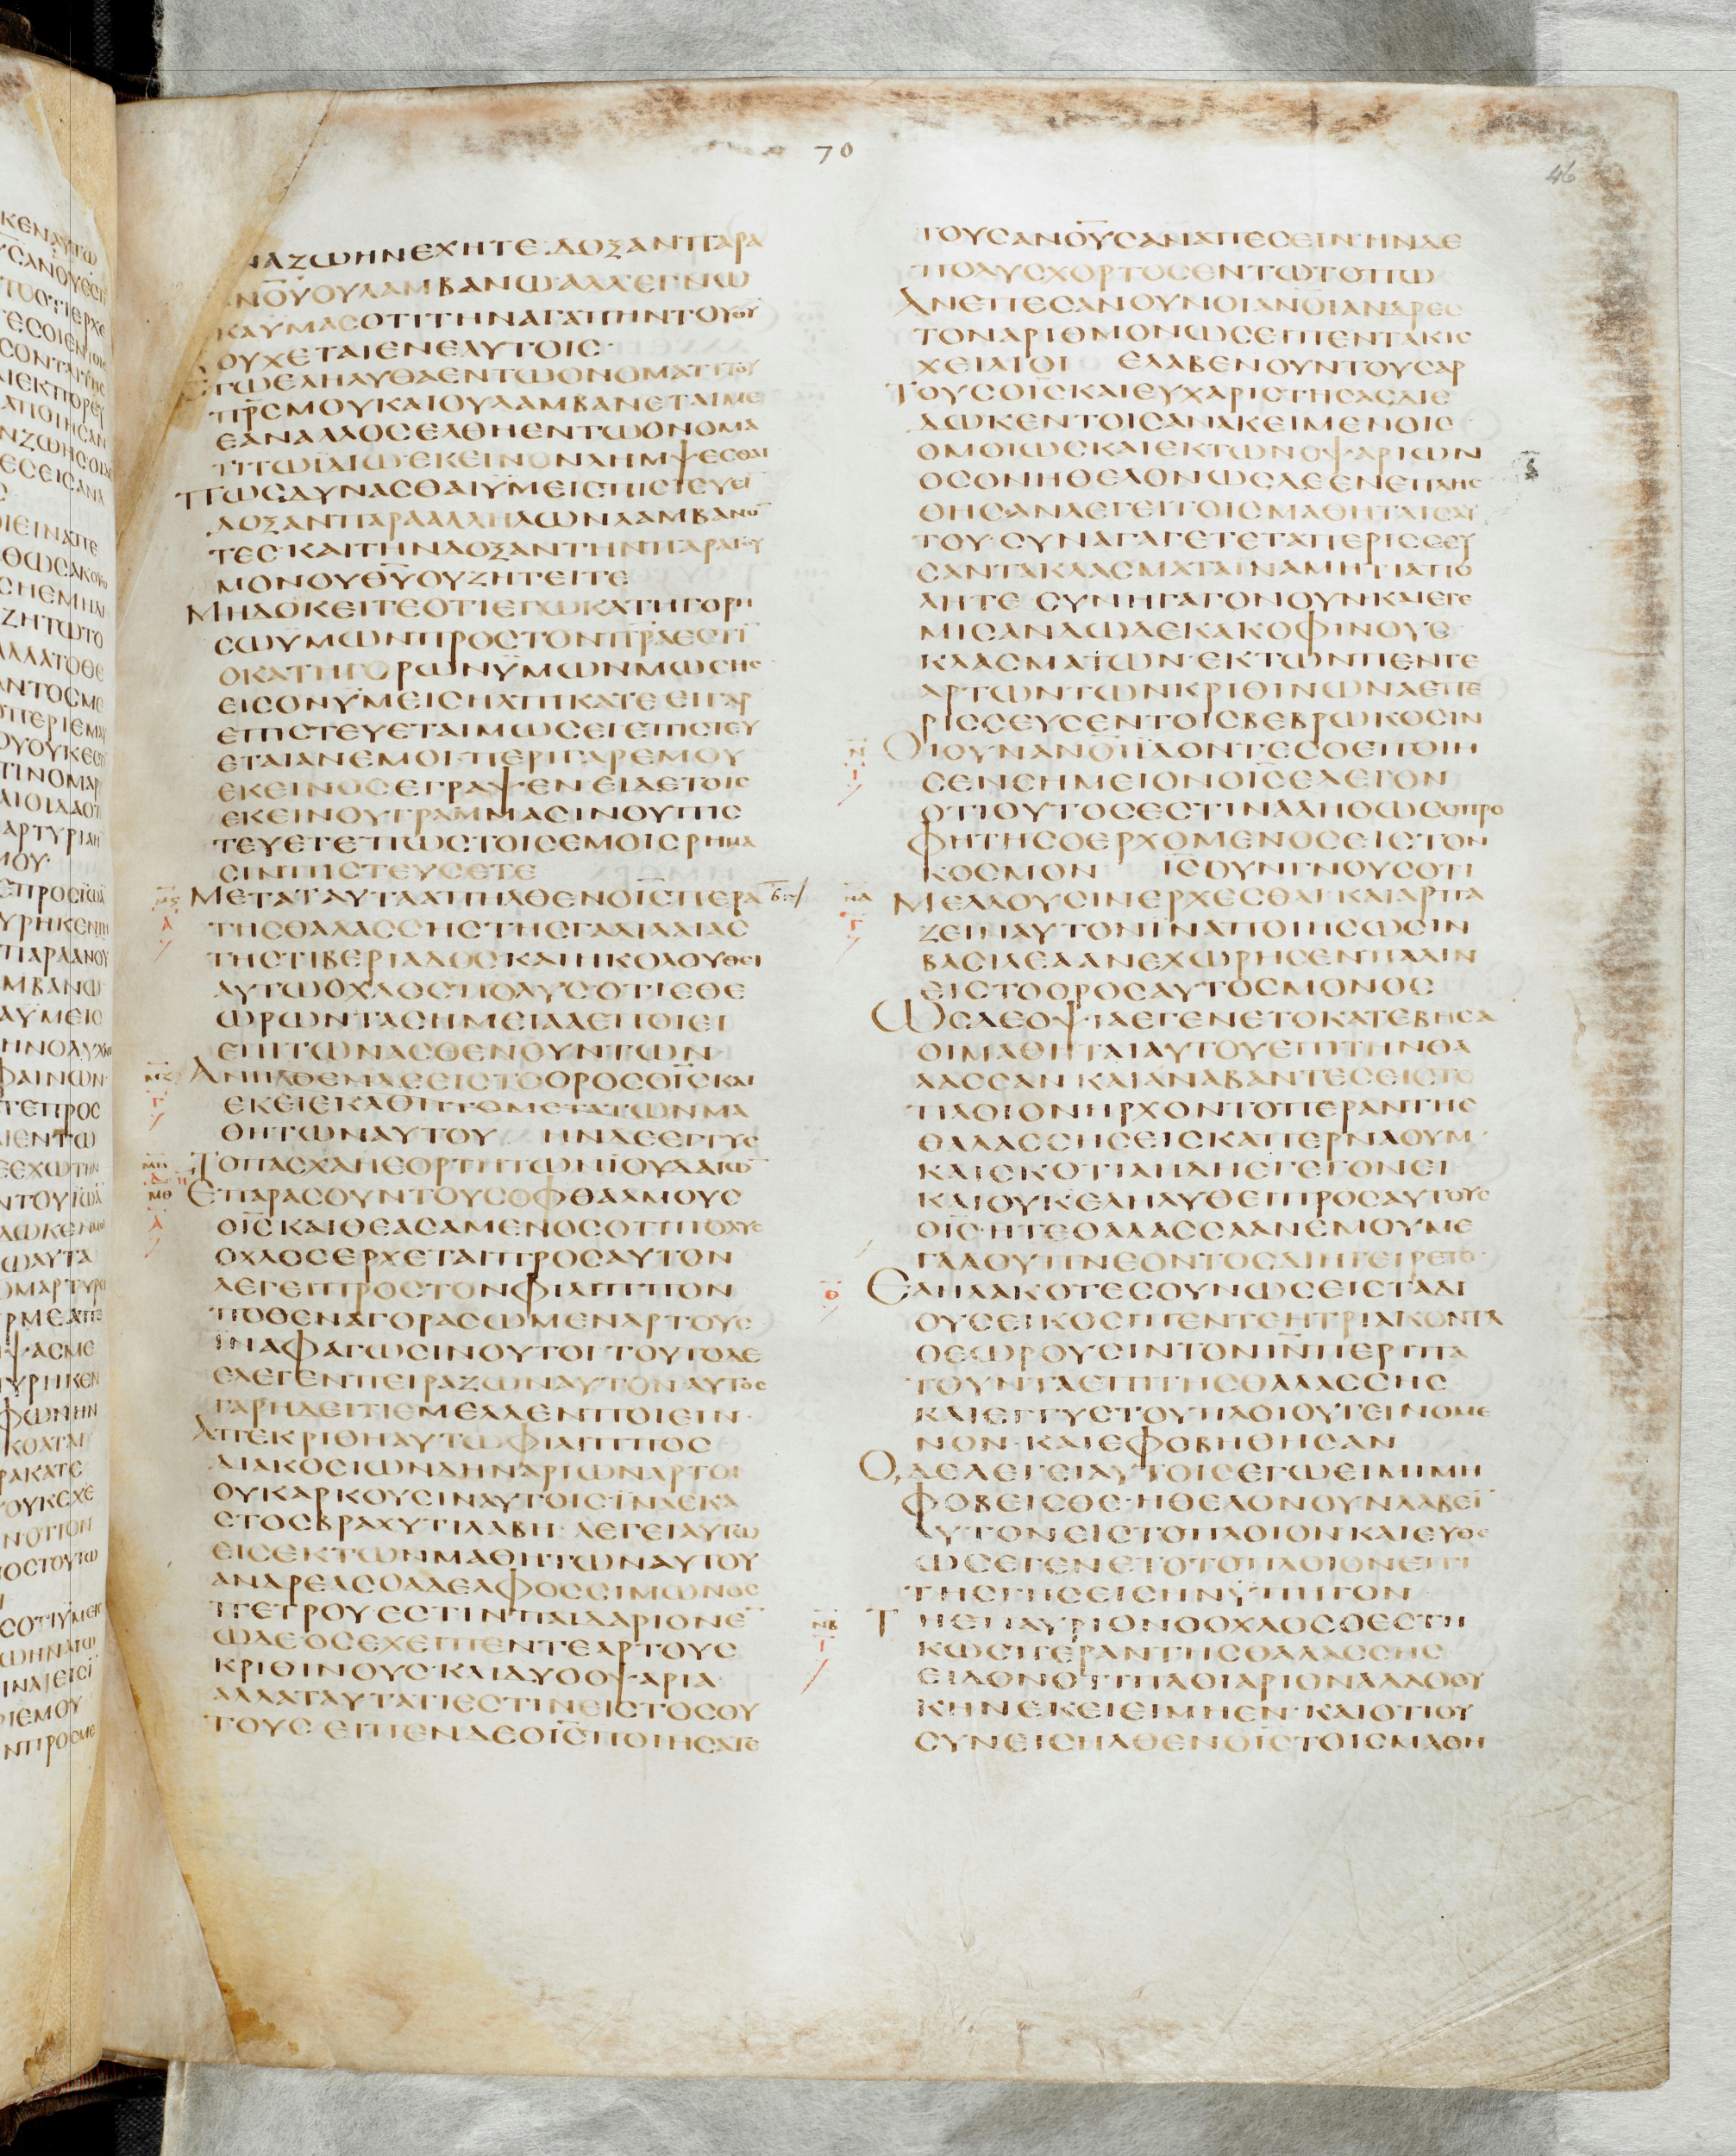 70
46
ΝΑΖΩΗΝΕΧΗΤΕ·ΔΟΞΑΝΠΑΡΑ
ΑΝΟΥΟΥΛΑΜΒΑΝΩ·ΑΛΛΕΓΝΩ
ΚΑΫΜΑΣΟΤΙΤΗΝΑΓΑΠΗΝΤΟΥΘΥ
ΟΥΧΕΤΑΙΕΝΕΑΥΤΟΙΣ
ΕΓΩΕΛΗΛΥΘΑΕΝΤΩΟΝΟΜΑΤΙΤΟΥ
ΠΡΣΜΟΥΚΑΙΟΥΛΑΜΒΑΝΕΤΑΙΜΕ
ΕΑΝΑΛΛΟΣΕΛΘΗΕΝΤΩΟΝΟΜΑ
ΤΙΤΩΪΔΙΩ·ΕΚΕΙΝΟΝΛΗΜΨΕΣΘΑΙ
ΠΩΣΔΥΝΑΣΘΑΙΫΜΕΙΣΠΙΣΤΕΥΕΙ
ΔΟΞΑΝΠΑΡΑΑΛΛΗΛΩΝΛΑΜΒΑΝΟ
ΤΕΣ·ΚΑΙΤΗΝΔΟΞΑΝΤΗΝΠΑΡΑΤΟΥ
ΜΟΝΟΥΘΥΟΥΖΗΤΕΙΤΕ
ΜΗΔΟΚΕΙΤΕΟΤΙΕΓΩΚΑΤΗΓΟΡΗ
ΣΩΫΜΩΝΠΡΟΣΤΟΝΠΡΑΕΣΤΙ
ΟΚΑΤΗΓΟΡΩΝΫΜΩΝΜΩΣΗΣ
ΕΙΣΟΝΫΜΕΙΣΗΛΠΙΚΑΤΕ·ΕΙΓΑΡ
ΕΠΙΣΤΕΥΕΤΑΙΜΩΣΕΙΕΠΙΣΤΕΥ
ΕΤΑΙΑΝΕΜΟΙ·ΠΕΡΙΓΑΡΕΜΟΥ
ΕΚΕΙΝΟΣΕΓΡΑΨΕΝ·ΕΙΔΕΤΟΙΣ
ΕΚΕΙΝΟΥΓΡΑΜΜΑΣΙΝΟΥΠΙΣ
ΤΕΥΕΤΕΠΩΣΤΟΙΣΕΜΟΙΣΡΗΜΑ
ΣΙΝΠΙΣΤΕΥΣΕΤΕ
ΜΕΤΑΤΑΥΤΑΑΠΗΛΘΕΝΟΙΣΠΕΡΑ
ΤΗΣΘΑΛΑΣΣΗΣΤΗΣΓΑΛΙΛΑΙΑΣ
ΤΗΣΤΙΒΕΡΙΑΔΟΣ·ΚΑΙΗΚΟΛΟΥΘΕΙ
ΑΥΤΩΟΧΛΟΣΠΟΛΥΣΟΤΙΕΘΕ
ΩΡΩΝΤΑΣΗΜΕΙΑΑΕΠΟΙΕΙ
ΕΠΙΤΩΝΑΣΘΕΝΟΥΝΤΩΝ
ΑΝΗΛΘΕΝΔΕΕΙΣΤΟΟΡΟΣΟΙΣΚΑΙ
ΕΚΕΙΕΚΑΘΗΤΟΜΕΤΑΤΩΝΜΑ
ΘΗΤΩΝΑΥΤΟΥ ΗΝΔΕΕΓΓΥΣ
ΤΟΠΑΣΧΑΗΕΟΡΤΗΤΩΝΪΟΥΔΑΙΩ
ΕΠΑΡΑΣΟΥΝΤΟΥΣΟΦΘΑΛΜΟΥΣ
ΟΙΣΚΑΙΘΕΑΣΑΜΕΝΟΣΟΤΙΠΟΛΥΣ
ΟΧΛΟΣΕΡΧΕΤΑΙΠΡΟΣΑΥΤΟΝ
ΛΕΓΕΙΠΡΟΣΤΟΝΦΙΛΙΠΠΟΝ
ΠΟΘΕΝΑΓΟΡΑΣΩΜΕΝΑΡΤΟΥΣ
ΪΝΑΦΑΓΩΣΙΝΟΥΤΟΙ·ΤΟΥΤΟΔΕ
ΕΛΕΓΕΝΠΕΙΡΑΖΩΝΑΥΤΟΝ·ΑΥΤΟΣ
ΓΑΡΗΔΕΙΤΙΕΜΕΛΛΕΝΠΟΙΕΙΝ·
ΑΠΕΚΡΙΘΗΑΥΤΩΦΙΛΙΠΠΟΣ
ΔΙΑΚΟΣΙΩΝΔΗΝΑΡΙΩΝΑΡΤΟΙ
ΟΥΚΑΡΚΟΥΣΙΝΑΥΤΟΙΣ·ΪΝΑΕΚΑ
ΣΤΟΣΒΡΑΧΥΤΙΛΑΒΗ·ΛΕΓΕΙΑΥΤΩ
ΕΙΣΕΚΤΩΝΜΑΘΗΤΩΝΑΥΤΟΥ
ΑΝΔΡΕΑΣΟΑΔΕΛΦΟΣΣΙΜΩΝΟΣ
ΠΕΤΡΟΥ·ΕΣΤΙΝΠΑΙΔΑΡΙΟΝΕ
ΩΔΕ·ΟΣΕΧΕΙΠΕΝΤΕΑΡΤΟΥΣ
ΚΡΙΘΙΝΟΥΣ·ΚΑΙΔΥΟΟΨΑΡΙΑ
ΑΛΛΑΤΑΥΤΑΤΙΕΣΤΙΝΕΙΣΤΟΣΟΥ
ΤΟΥΣ ΕΙΠΕΝΔΕΟΙΣΠΟΙΗΣΑΤΕ
ΤΟΥΣΑΝΟΥΣΑΝΑΠΕΣΕΙΝ·ΗΝΔΕ
ΠΟΛΥΣΧΟΡΤΟΣΕΝΤΩΤΟΠΩ
ΑΝΕΠΕΣΑΝΟΥΝΟΙΑΝΟΙΑΝΔΡΕΣ
ΤΟΝΑΡΙΘΜΟΝΩΣΕΙΠΕΝΤΑΚΙΣ
ΧΕΙΛΙΟΙ ΕΛΑΒΕΝΟΥΝΤΟΥΣΑΡ
ΤΟΥΣΟΙΣΚΑΙΕΥΧΑΡΙΣΤΗΣΑΣΔΙΕ
ΔΩΚΕΝΤΟΙΣΑΝΑΚΕΙΜΕΝΟΙΣ
ΟΜΟΙΩΣΚΑΙΕΚΤΩΝΟΨΑΡΙΩΝ
ΟΣΟΝΗΘΕΛΟΝ·ΩΣΔΕΕΝΕΠΛΗΣ
ΘΗΣΑΝΛΕΓΕΙΤΟΙΣΜΑΘΗΤΑΙΣΑΥ
ΤΟΥ·ΣΥΝΑΓΑΓΕΤΕΤΑΠΕΡΙΣΣΕΥ
ΣΑΝΤΑΚΛΑΣΜΑΤΑΪΝΑΜΗΤΙΑΠΟ
ΛΗΤΕ ΣΥΝΗΓΑΓΟΝΟΥΝΚΑΙΕΓΕ
ΜΙΣΑΝΔΩΔΕΚΑΚΟΦΙΝΟΥΣ
ΚΛΑΣΜΑΤΩΝ·ΕΚΤΩΝΠΕΝΤΕ
ΑΡΤΩΝΤΩΝΚΡΙΘΙΝΩΝΑΕΠΕ
ΡΙΣΣΕΥΣΕΝΤΟΙΣΒΕΒΡΩΚΟΣΙΝ
ΟΙΟΥΝΑΝΟΙΪΔΟΝΤΕΣΟΕΠΟΙΗ
ΣΕΝΣΗΜΕΙΟΝΟΙΣΕΛΕΓΟΝ
ΟΤΙΟΥΤΟΣΕΣΤΙΝΑΛΗΘΩΣΟΠΡΟ
ΦΗΤΗΣΟΕΡΧΟΜΕΝΟΣΕΙΣΤΟΝ
ΚΟΣΜΟΝ ΙΣΟΥΝΓΝΟΥΣΟΤΙ
ΜΕΛΛΟΥΣΙΝΕΡΧΕΣΘΑΙ·ΚΑΙΑΡΠΑ
ΖΕΙΝΑΥΤΟΝΪΝΑΠΟΙΗΣΩΣΙΝ
ΒΑΣΙΛΕΑΑΝΕΧΩΡΗΣΕΝΠΑΛΙΝ
ΕΙΣΤΟΟΡΟΣΑΥΤΟΣΜΟΝΟΣ
ΩΣΔΕΟΨΙΑΕΓΕΝΕΤΟΚΑΤΕΒΗΣΑ
ΟΙΜΑΘΗΤΑΙΑΥΤΟΥΕΠΙΤΗΝΘΑ
ΛΑΣΣΑΝ·ΚΑΙΑΝΑΒΑΝΤΕΣΕΙΣΤΟ
ΠΛΟΙΟΝΗΡΧΟΝΤΟΠΕΡΑΝΤΗΣ
ΘΑΛΑΣΣΗΣΕΙΣΚΑΠΕΡΝΑΟΥΜ·
ΚΑΙΣΚΟΤΙΑΗΔΗΕΓΕΓΟΝΕΙ
ΚΑΙΟΥΚΕΛΗΛΥΘΕΙΠΡΟΣΑΥΤΟΥΣ
ΟΙΣ·ΗΤΕΘΑΛΑΣΣΑΑΝΕΜΟΥΜΕ
ΓΑΛΟΥΠΝΕΟΝΤΟΣΔΙΗΓΕΙΡΕΤΟ·
ΕΛΗΛΑΚΟΤΕΣΟΥΝΩΣΕΙΣΤΑΔΙ
ΟΥΣΕΙΚΟΣΙΠΕΝΤΕΗΤΡΙΑΚΟΝΤΑ
ΘΕΩΡΟΥΣΙΝΤΟΝΙΝΠΕΡΙΠΑ
ΤΟΥΝΤΑΕΠΙΤΗΣΘΑΛΑΣΣΗΣ
ΚΑΙΕΓΓΥΣΤΟΥΠΛΟΙΟΥΓΕΙΝΟΜΕ
ΝΟΝ·ΚΑΙΕΦΟΒΗΘΗΣΑΝ
ΟΔΕΛΕΓΕΙΑΥΤΟΙΣΕΓΩΕΙΜΙΜΗ
ΦΟΒΕΙΣΘΕ·ΗΘΕΛΟΝΟΥΝΛΑΒΕΙ
ΑΥΤΟΝΕΙΣΤΟΠΛΟΙΟΝ·ΚΑΙΕΥΘΕ
ΩΣΕΓΕΝΕΤΟΤΟΠΛΟΙΟΝΕΠΙ
ΤΗΣΓΗΣΕΙΣΗΝΫΠΗΓΟΝ
ΤΗΕΠΑΥΡΙΟΝΟΟΧΛΟΣΟΕΣΤΗ
ΚΩΣΠΕΡΑΝΤΗΣΘΑΛΑΣΣΗΣ
ΕΙΔΟΝΟΤΙΠΛΟΙΑΡΙΟΝΑΛΛΟΟΥ
ΚΗΝΕΚΕΙΕΙΜΗΕΝ·ΚΑΙΟΤΙΟΥ
ΣΥΝΕΙΣΗΛΘΕΝΟΙΣΤΟΙΣΜΑΘΗ